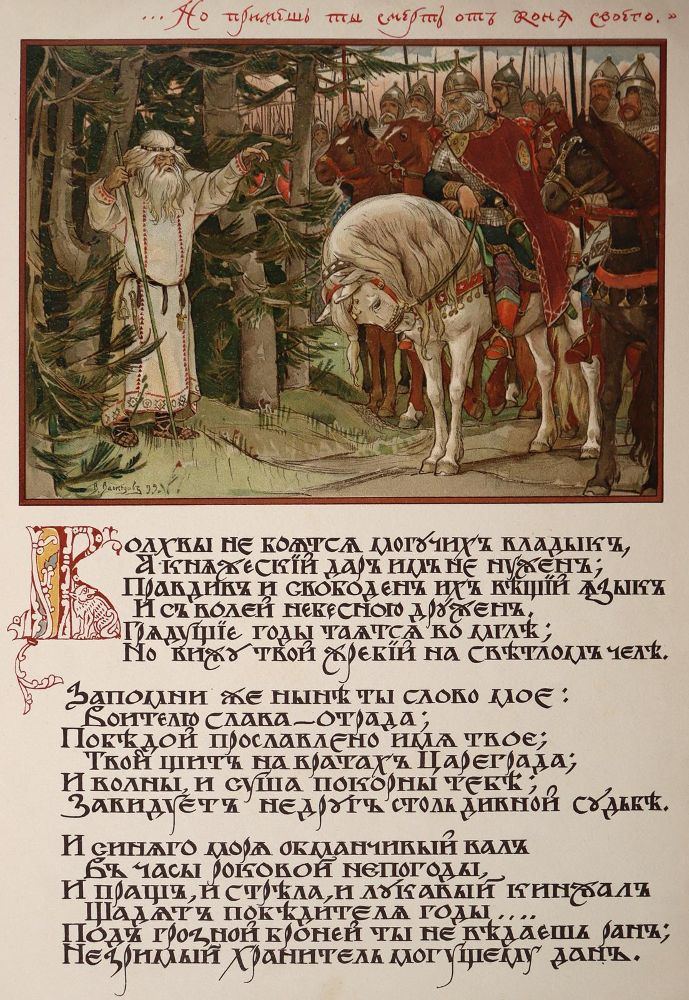 ...Но примешь ты смерть отъ коня своего.»
В. Васнецовъ 99.
Волхвы не боятся могучихъ владыкъ,
А княжескій даръ имъ не нуженъ;
Правдивъ и свободенъ ихъ вѣщій языкъ
И съ волей небесною друженъ.
Грядущіе годы таятся во мглѣ;
Но вижу твой жребій на свѣтломъ челѣ.
Запомни же нынѣ ты слово мое:
Воителю слава—отрада;
Побѣдой прославлено имя твое;
Твой щитъ на вратахъ Цареграда;
И волны, и суша покорны тебѣ;
Завидуетъ недругъ столь дивной судьбѣ.
И синяго моря обманчивый валъ
Въ часы роковой непогоды,
И пращъ, и стрѣла, и лукавый кинжалъ
Щадятъ побѣдителя годы....
Подъ грозной броней ты не вѣдаешь ранъ;
Незримый хранитель могущему данъ.